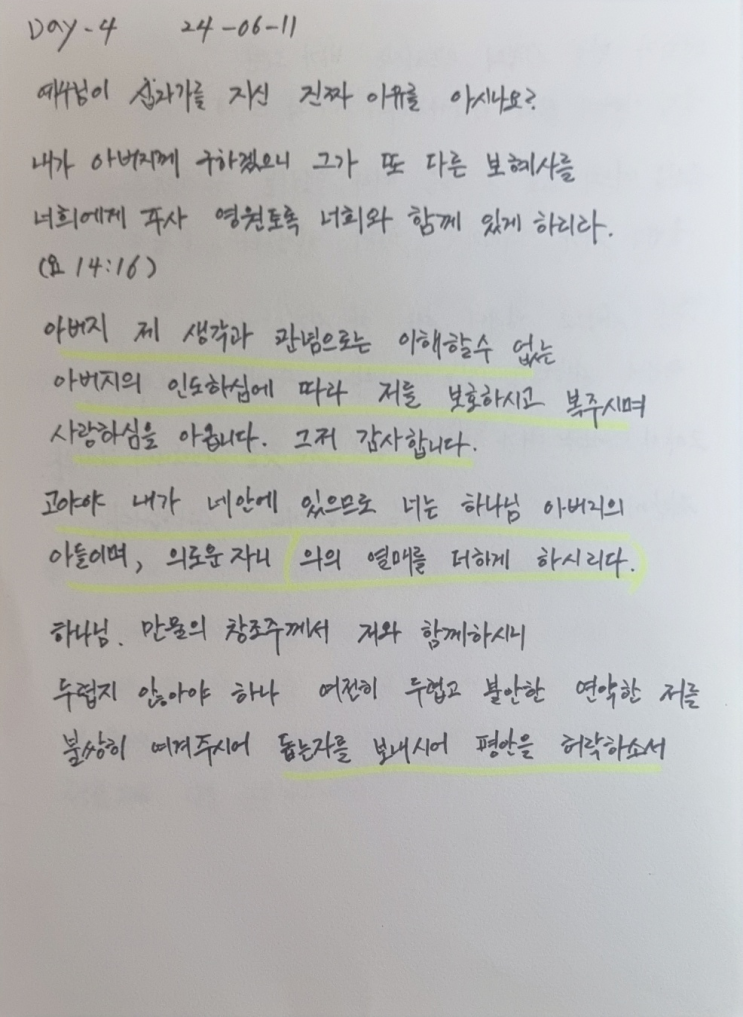 Day-4 24-06-11
예수님이 십자가를 지신 진짜 이유를 아시나요?
내가 아버지께 구하겠으니 그가 또 다른 보혜사를
너희에게 주사 영원토록 너희와 함께 있게 하리라.
(요 14:16)
아버지 제 생각과 관념으로는 이해할수 없는
아버지의 인도하심에 따라 저를 보호하시고 복주시며
사랑하심을 아옵니다. 그저 감사합니다.
고야야 내가 네안에 있으므로 너는 하나님 아버지의
아들이며, 의로운 자니 의의 열매를 더하게 하시리다.
하나님. 만물의 창조주께서 저와 함께하시니
두렵지 않아야 하나 여전히 두렵고 불안한 연약한 저를
불쌍히 여겨주시어 돕는자를 보내시어 평안을 허락하소서